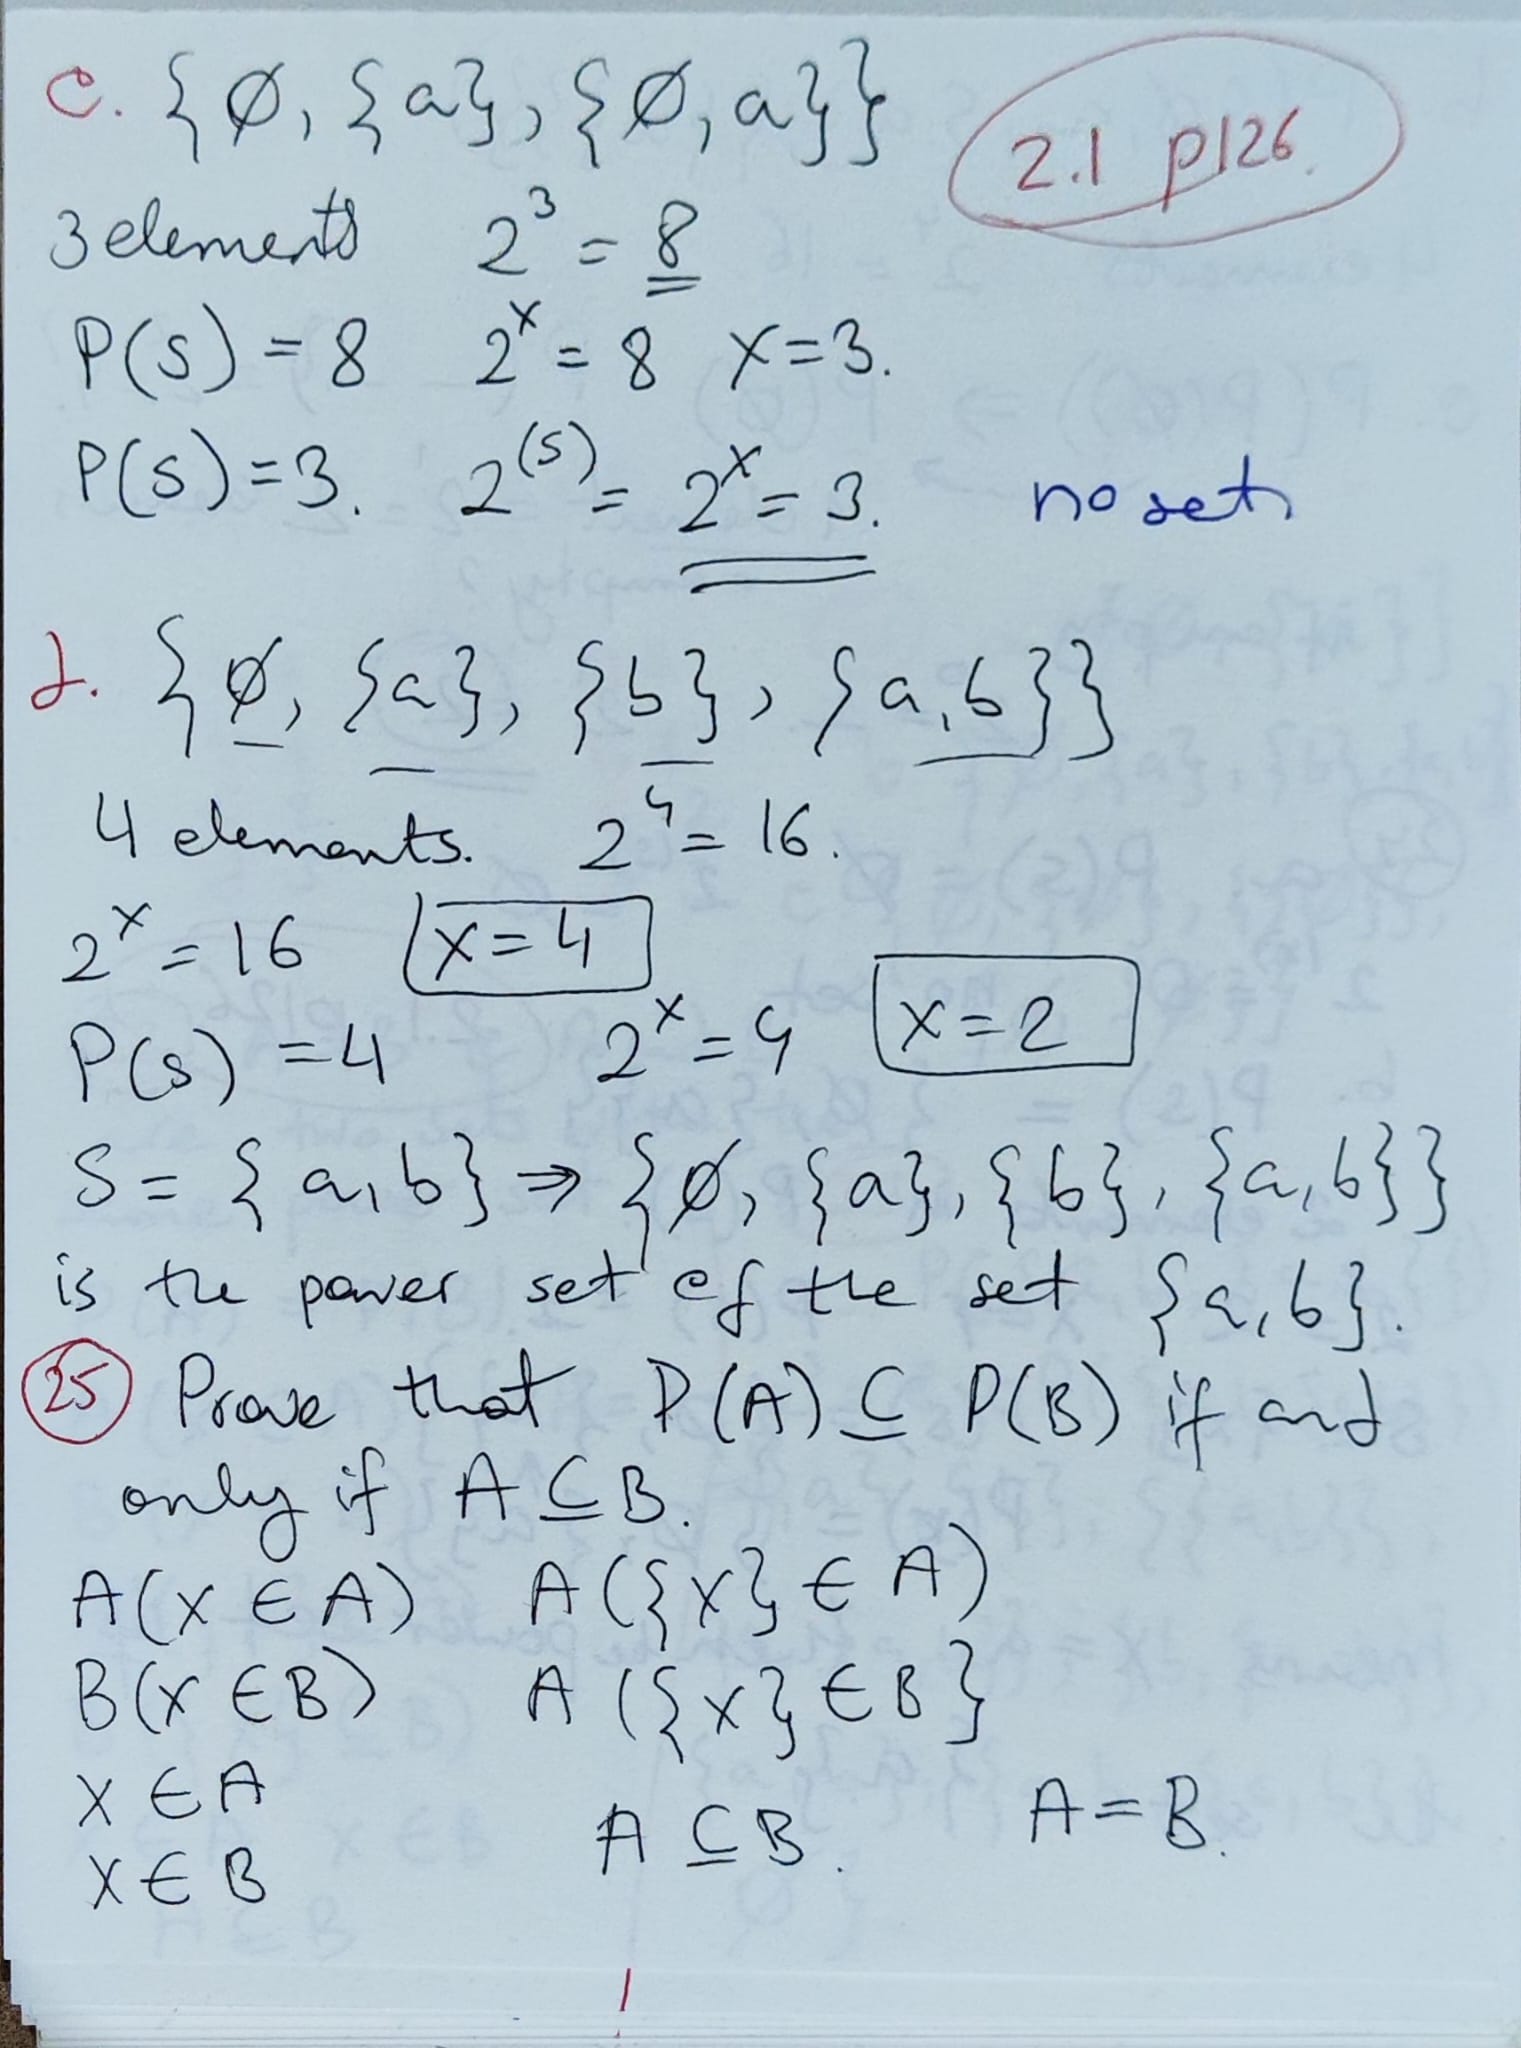 c. {∅, {a}, {∅, a}}
2.1 p126.
3 elements 2³ = 8
P(S) = 8 2ˣ = 8 x=3.
P(S)=3. 2⁽ˢ⁾ = 2ˣ = 3. no set
d. {∅, {a}, {b}, {a,b}}
4 elements. 2⁴ = 16.
2ˣ = 16 x=4
P(S) = 4 2ˣ = 4 x=2
S = {a,b} ⇒ {∅, {a}, {b}, {a,b}}
is the power set of the set {a,b}.
25 Prove that P(A) ⊆ P(B) if and
only if A ⊆ B.
A(x ∈ A) A({x} ∈ A)
B(x ∈ B) A({x} ∈ B}
x ∈ A
A ⊆ B. A = B.
x ∈ B